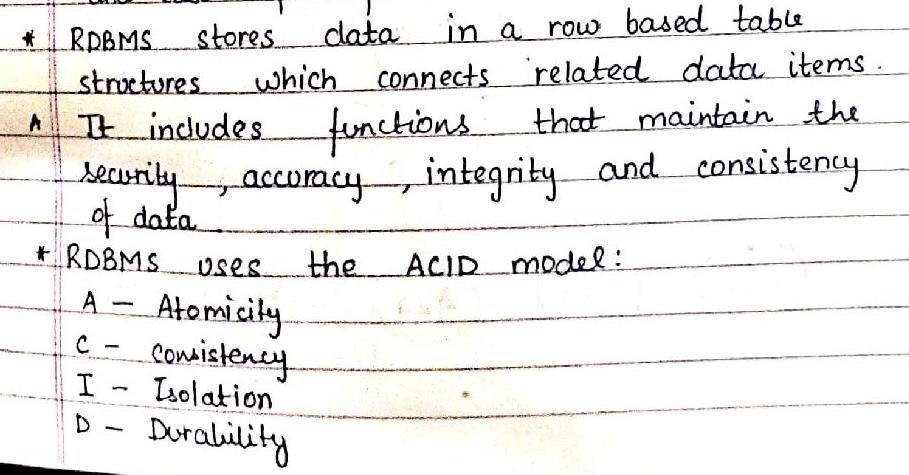 * RDBMS stores data in a row based table
structures which connects related data items.
* It includes functions that maintain the
security, accuracy, integrity and consistency
of data.
* RDBMS uses the ACID model:
A - Atomicity
C - Consistency
I - Isolation
D - Durability